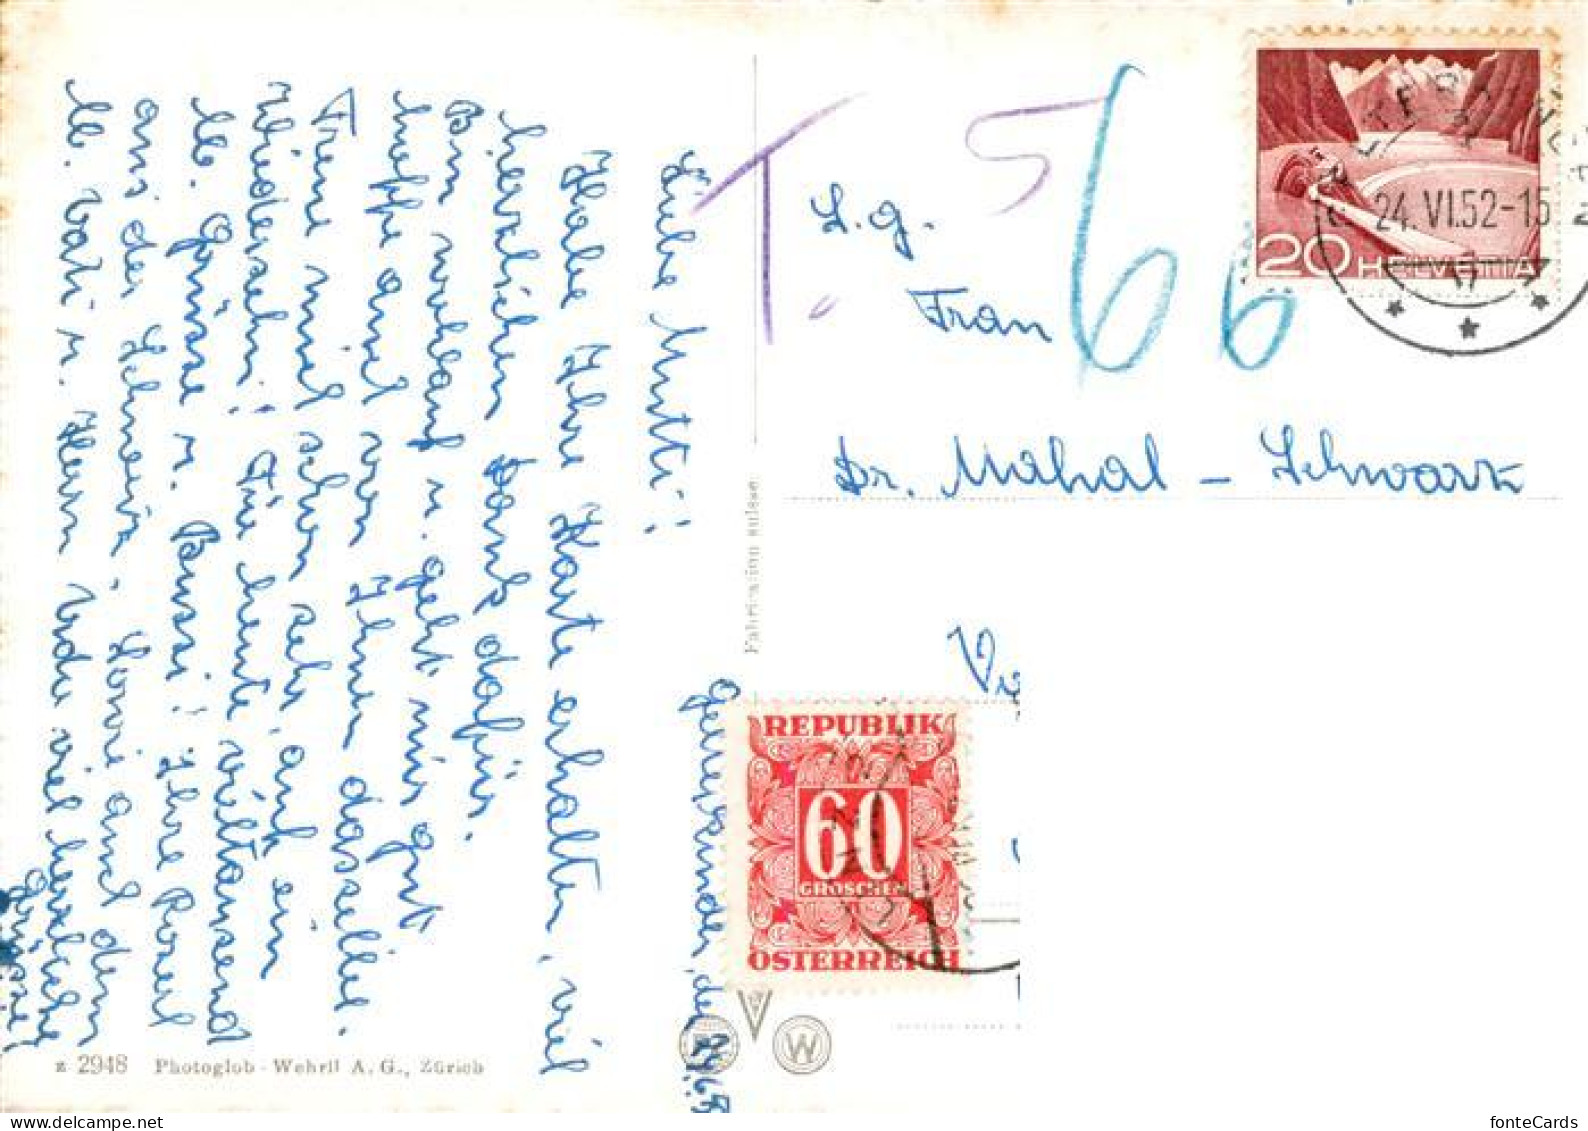 Liebe Mutti!
Habe Ihre Karte erhalten, viel
herzlichen Dank dafür.
Bin wohlauf u. geht mir gut
hoffe auch von Ihnen dasselbe.
Freue mich schon sehr auf ein
Wiedersehn! Für heute viltausend
lb. Grüsse u. Bussi! Ihre Rosel
aus der Schweiz.
lb. Vati u. Herrn viel herzliche
Grüsse,
Gurtnellen, den 24.6.52
z 2948 Photoglob-Wehrli A.G., Zürich
Fabrication suisse.
T. 5
66
S.g.
Frau
Dr. Mahal - Schwark
20 HELVETIA
24.VI.52-15
REPUBLIK
60
GROSCHEN
ÖSTERREICH
W
fonteCards